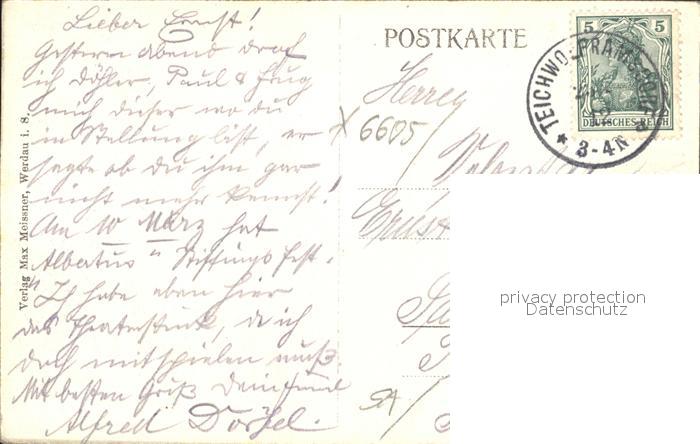 Lieber Ernst!
Gestern abend traf
ich Döhler, Paul & frug
mich dieser wo du
in Stellung bist, er
sagte ob du ihm gar
nicht mehr kennst!
Am 10 März hat
"Albertus" Stiftungsfest.
Ich habe eben hier
das Theaterstück, da ich
doch mitspielen muß.
Mit besten Gruß Dein
Alfred
Verlag Max Meissner, Werdau i. S.
POSTKARTE
5 5
DEUTSCHES REICH
TEICHWO
3-4N
Herrn
6605
Ernst
privacy protection
Datenschutz